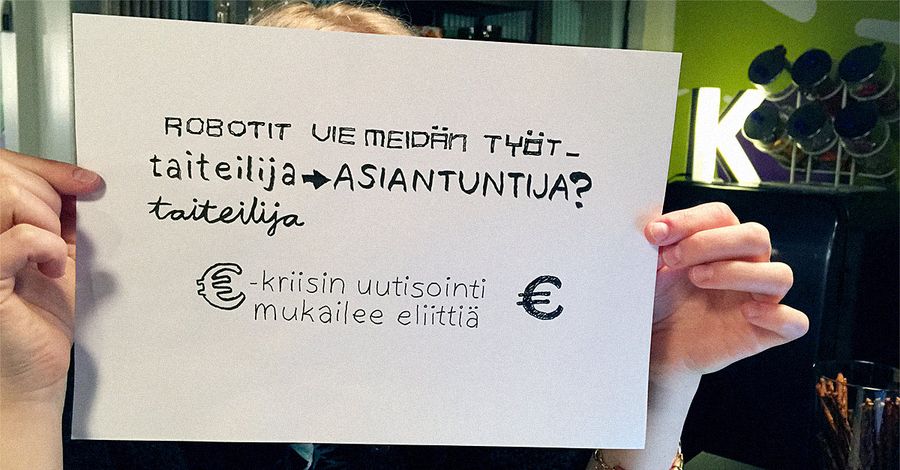 ROBOTIT VIE MEIDÄN TYÖT_
taiteilija➡ASIANTUNTIJA?
taiteilija
€-kriisin uutisointi €
mukailee eliittiä
K